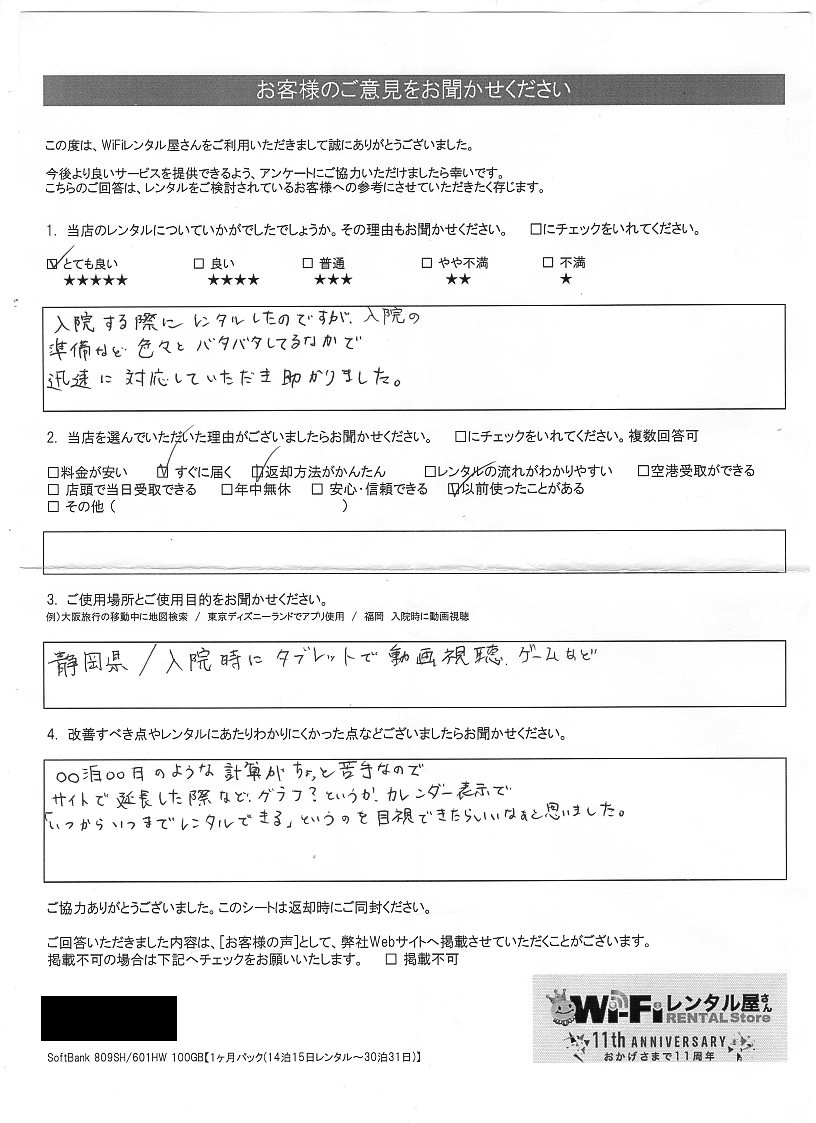 お客様のご意見をお聞かせください
この度は、WiFiレンタル屋さんをご利用いただきまして誠にありがとうございました。
今後より良いサービスを提供できるよう、アンケートにご協力いただけましたら幸いです。
こちらのご回答は、レンタルをご検討されているお客様への参考にさせていただきたく存じます。
1. 当店のレンタルについていかがでしたでしょうか。その理由もお聞かせください。 □にチェックをいれてください。
☑とても良い □ 良い □ 普通 □ やや不満 □ 不満
★★★★★ ★★★★ ★★★ ★★ ★
入院する際にレンタルしたのですが、入院の
準備など色々とバタバタしてるなかで
迅速に対応していただき助かりました。
2. 当店を選んでいただいた理由がございましたらお聞かせください。 □にチェックをいれてください。複数回答可
□料金が安い ☑ すぐに届く ☑返却方法がかんたん □レンタルの流れがわかりやすい □空港受取ができる
□ 店頭で当日受取できる □年中無休 □ 安心・信頼できる ☑以前使ったことがある
□ その他 ( )
3. ご使用場所とご使用目的をお聞かせください。
例)大阪旅行の移動中に地図検索 / 東京ディズニーランドでアプリ使用 / 福岡 入院時に動画視聴
静岡県/入院時にタブレットで動画視聴、ゲームなど
4. 改善すべき点やレンタルにあたりわかりにくかった点などございましたらお聞かせください。
○○泊○○日のような計算がちょっと苦手なので
サイトで延長した際など、グラフ?というか、カレンダー表示で
「いつからいつまでレンタルできる」というのを目視できたらいいなぁと思いました。
ご協力ありがとうございました。このシートは返却時にご同封ください。
ご回答いただきました内容は、[お客様の声]として、弊社Webサイトへ掲載させていただくことがございます。
掲載不可の場合は下記へチェックをお願いいたします。 □ 掲載不可
Wi-Fiレンタル屋さん
RENTAL Store
11th ANNIVERSARY
おかげさまで11周年
SoftBank 809SH/601HW 100GB【1ヶ月パック(14泊15日レンタル～30泊31日)】